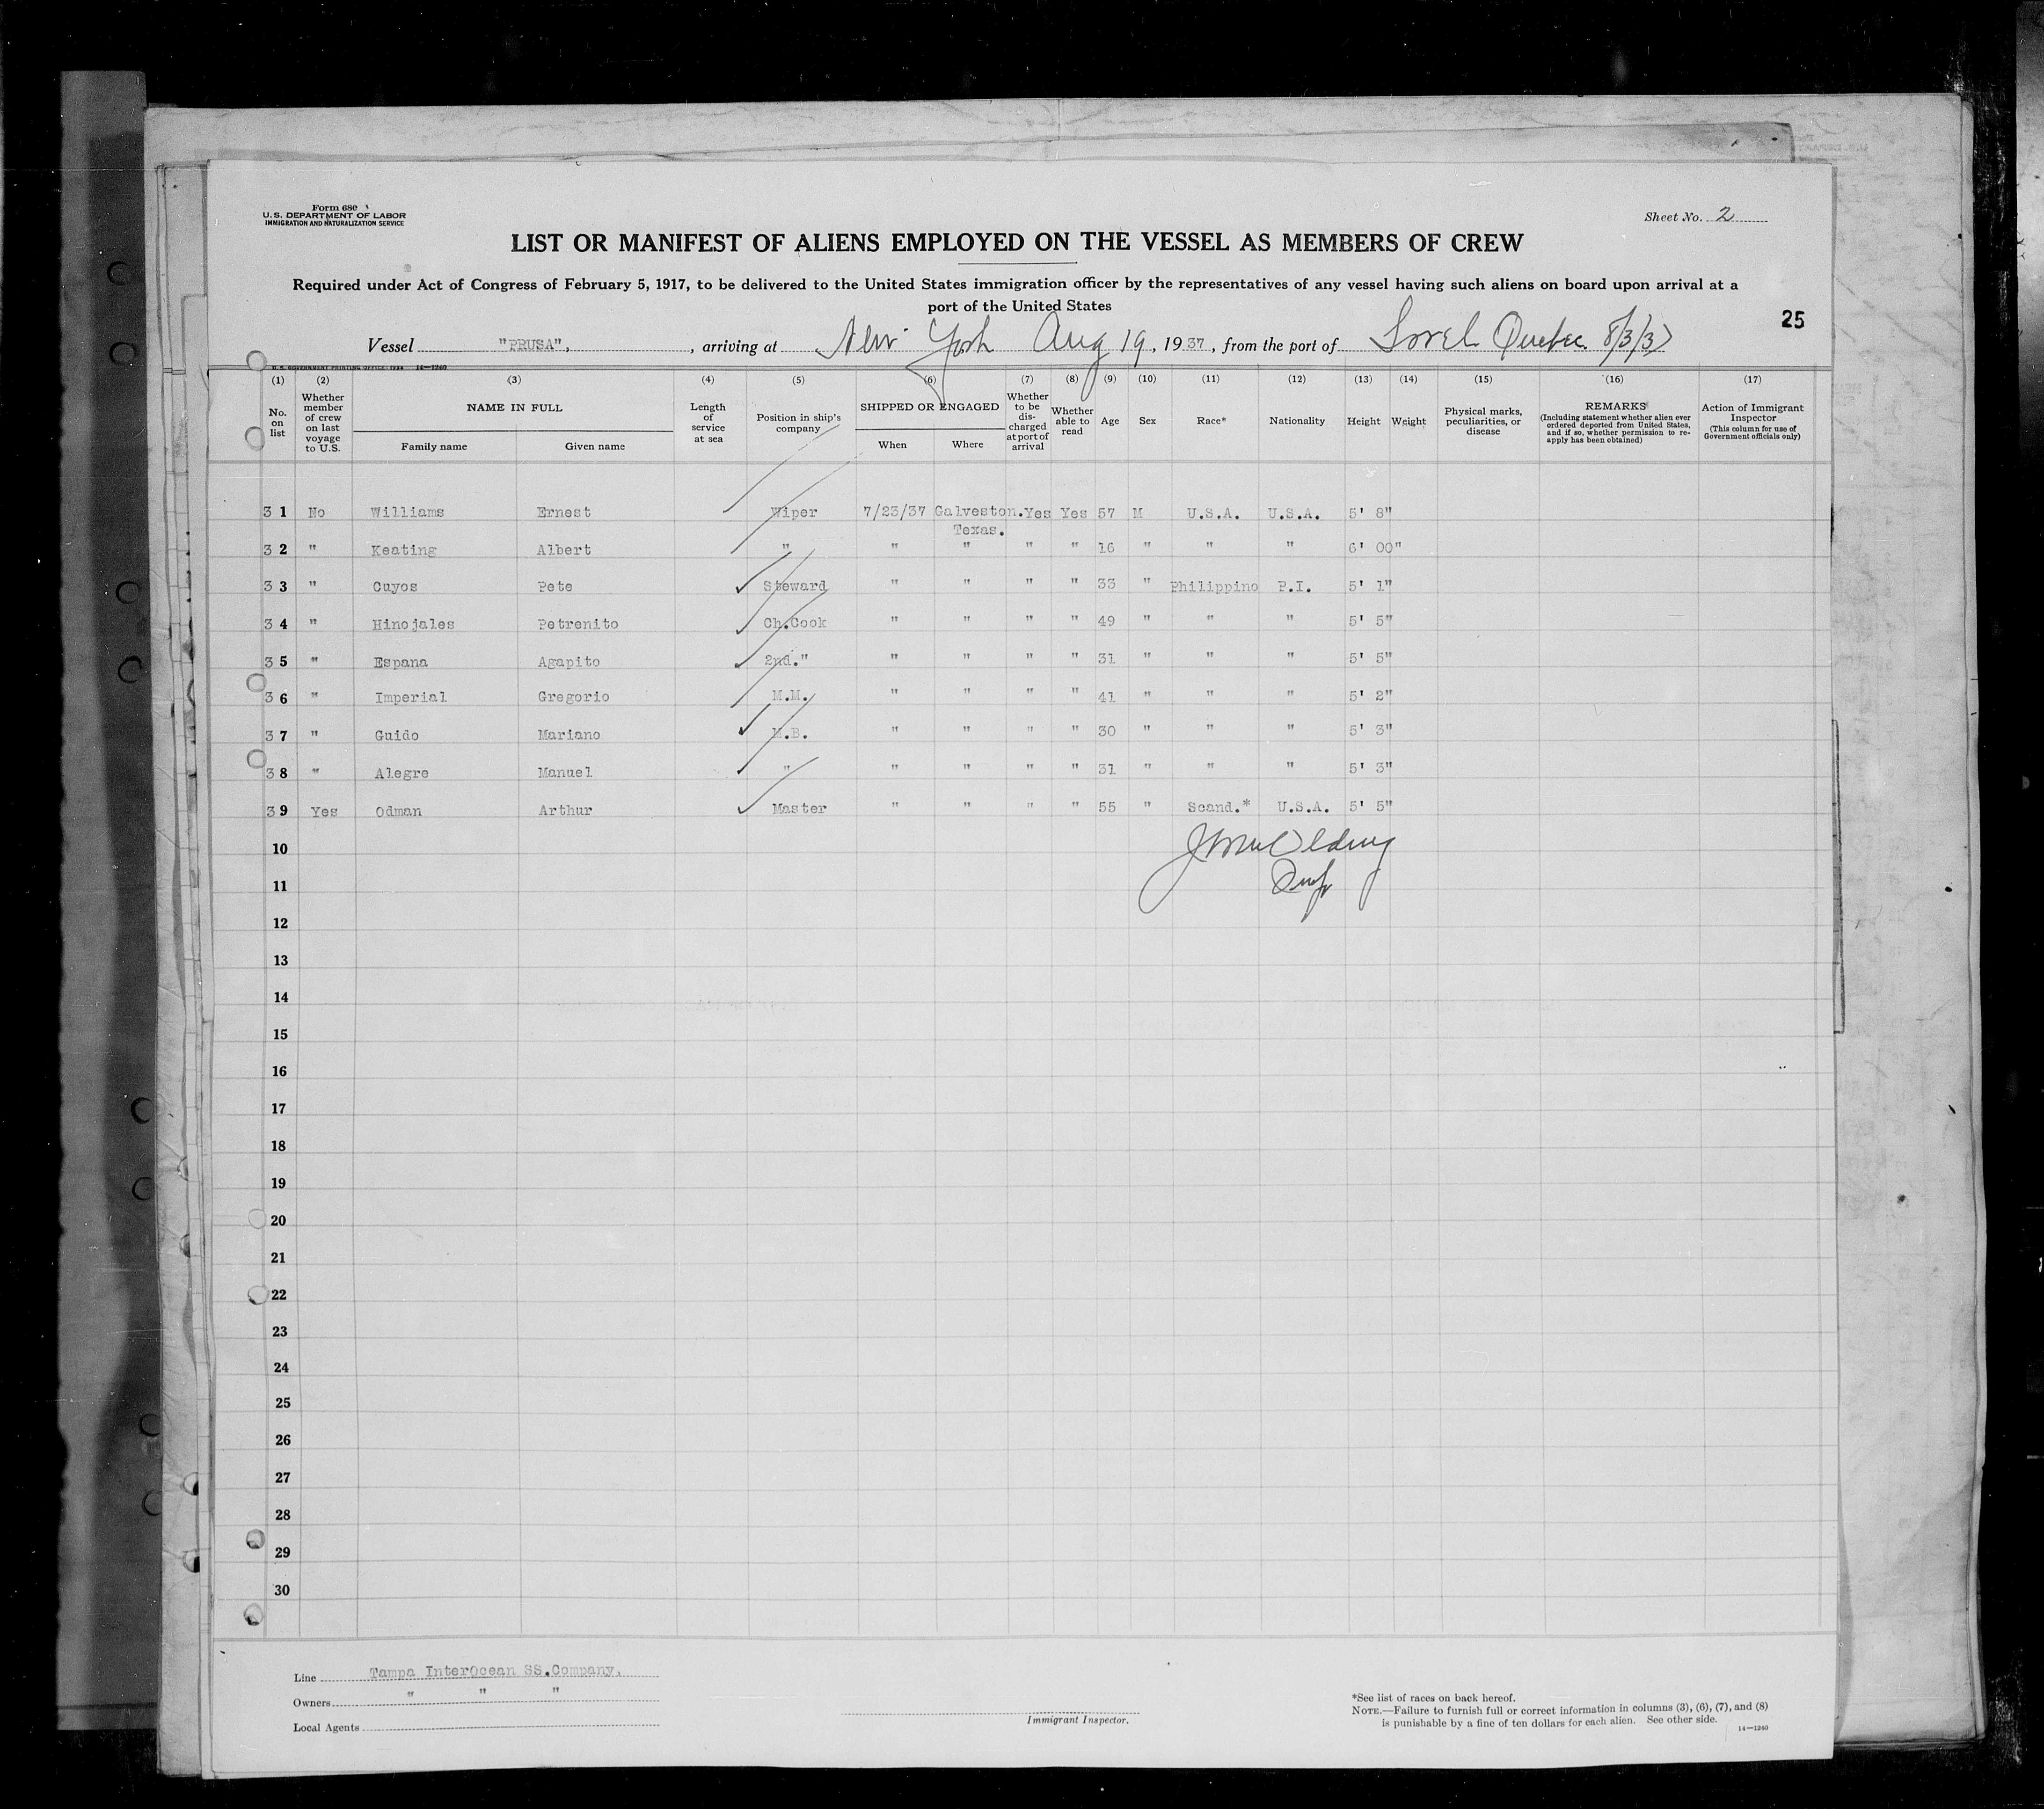 Form 680
U.S. DEPARTMENT OF LABOR
IMMIGRATION AND NATURALIZATION SERVICE
Sheet No. 2
LIST OR MANIFEST OF ALIENS EMPLOYED ON THE VESSEL AS MEMBERS OF CREW
Required under Act of Congress of February 5, 1917, to be delivered to the United States immigration officer by the representatives of any vessel having such aliens on board upon arrival at a
port of the United States
25
Vessel "PRUSA", , arriving at New York Aug 19, 1937, from the port of Sorel Quebec 8/3/37
U.S. GOVERNMENT PRINTING OFFICE: 1934 14—1240
(1) (2) (3) (4) (5) (6) (7) (8) (9) (10) (11) (12) (13) (14) (15) (16) (17)
No. on list
Whether member of crew on last voyage to U.S.
NAME IN FULL
Family name Given name
Length of service at sea
Position in ship's company
SHIPPED OR ENGAGED
When Where
Whether to be discharged at port of arrival
Whether able to read
Age Sex Race* Nationality Height Weight
Physical marks, peculiarities, or disease
REMARKS
(Including statement whether alien ever ordered deported from United States, and if so, whether permission to re-apply has been obtained)
Action of Immigrant Inspector
(This column for use of Government officials only)
3 1 No Williams Ernest Wiper 7/23/37 Galveston. Yes Yes 57 M U.S.A. U.S.A. 5' 8"
Texas.
3 2 " Keating Albert " " " " " 16 " " " 6' 00"
3 3 " Cuyos Pete Steward " " " " 33 " Philippino P.I. 5' 1"
3 4 " Hinojales Petrenito Ch.Cook " " " " 49 " " " 5' 5"
3 5 " Espana Agapito 2nd." " " " " 31 " " " 5' 5"
3 6 " Imperial Gregorio M.M. " " " " 41 " " " 5' 2"
3 7 " Guido Mariano M.B. " " " " 30 " " " 5' 3"
3 8 " Alegre Manuel " " " " " 31 " " " 5' 3"
3 9 Yes Odman Arthur Master " " " " 55 " Scand.* U.S.A. 5' 5"
10
11
12
13
14
15
16
17
18
19
20
21
22
23
24
25
26
27
28
29
30
Line Tampa InterOcean SS.Company.
Owners " " "
Local Agents
Immigrant Inspector.
*See list of races on back hereof.
NOTE.—Failure to furnish full or correct information in columns (3), (6), (7), and (8)
is punishable by a fine of ten dollars for each alien. See other side.
14—1240